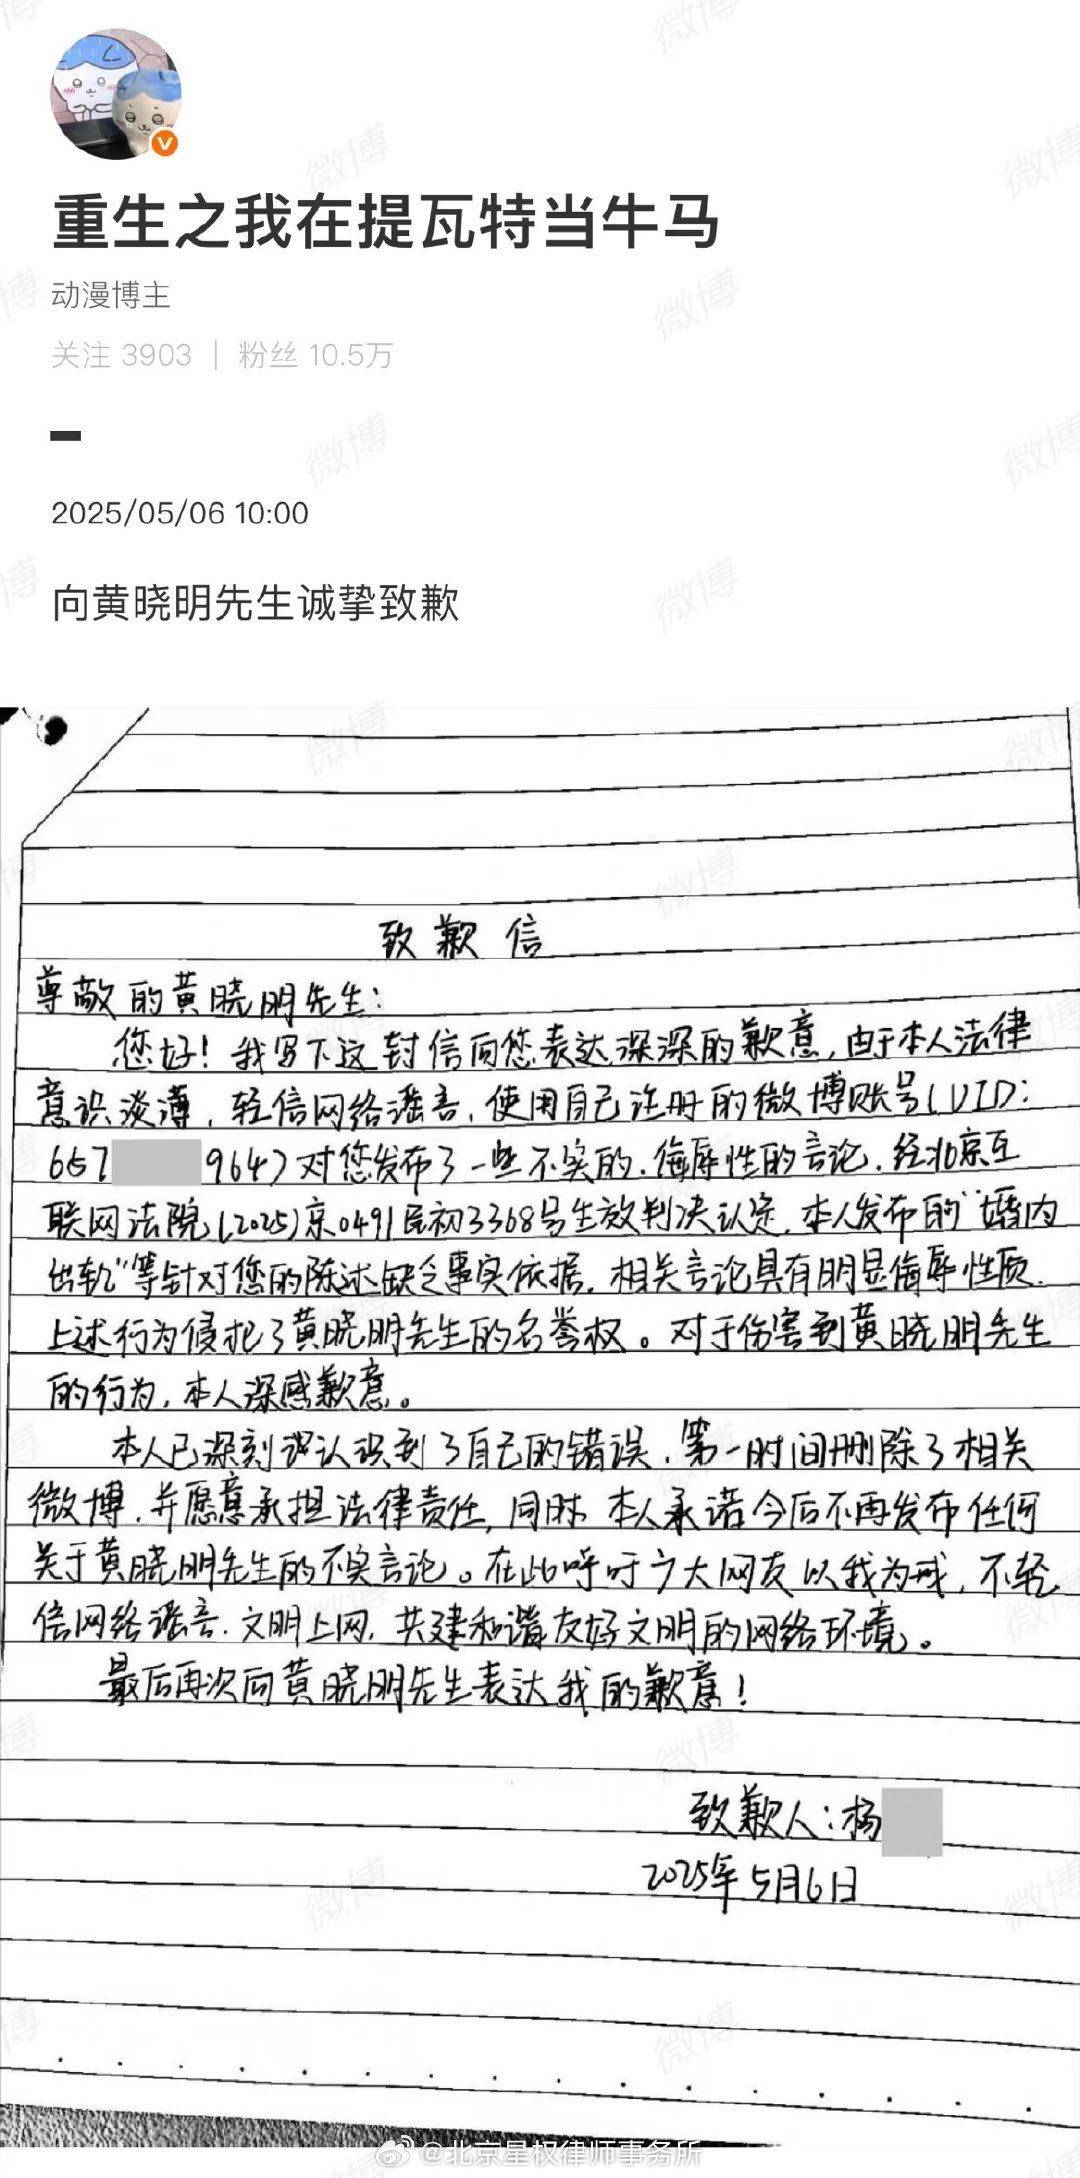 重生之我在提瓦特当牛马
动漫博主
关注 3903 | 粉丝 10.5万
2025/05/06 10:00
向黄晓明先生诚挚致歉
致歉信
尊敬的黄晓明先生:
您好! 我写下这封信向您表达深深的歉意,由于本人法律
意识淡薄,轻信网络谣言,使用自己注册的微博账号(UID:
657 9647)对您发布了一些不实的、侮辱性的言论,经北京互
联网法院(2025)京0491民初3368号生效判决认定,本人发布的"婚内
出轨"等针对您的陈述缺乏事实依据,相关言论具有明显侮辱性质,
上述行为侵犯了黄晓明先生的名誉权。对于伤害到黄晓明先生
的行为,本人深感歉意。
本人已深刻认识到了自己的错误,第一时间删除了相关
微博,并愿意承担法律责任,同时,本人承诺今后不再发布任何
关于黄晓明先生的不实言论。在此呼吁广大网友以我为戒,不轻
信网络谣言,文明上网,共建和谐友好文明的网络环境。
最后再次向黄晓明先生表达我的歉意!
致歉人:杨
2025年5月6日
@北京星权律师事务所
微博